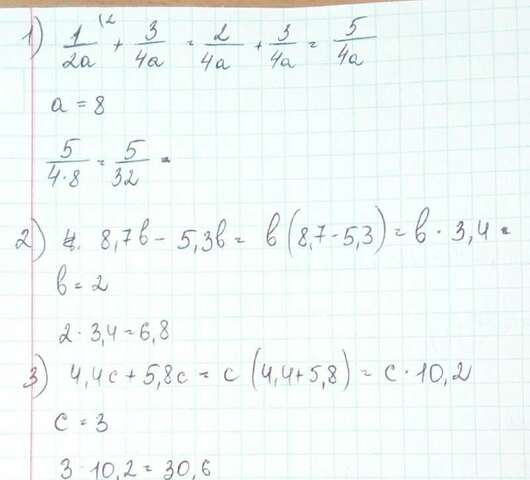 1) 1/2a (2 + 3/4a = 2/4a + 3/4a = 5/4a
a = 8
5/4·8 = 5/32 =
2) 8,7в - 5,3в = в(8,7-5,3) = в · 3,4 =
в = 2
2 · 3,4 = 6,8
3) 4,4с + 5,8с = с (4,4+5,8) = с · 10,2
с = 3
3 · 10,2 = 30,6